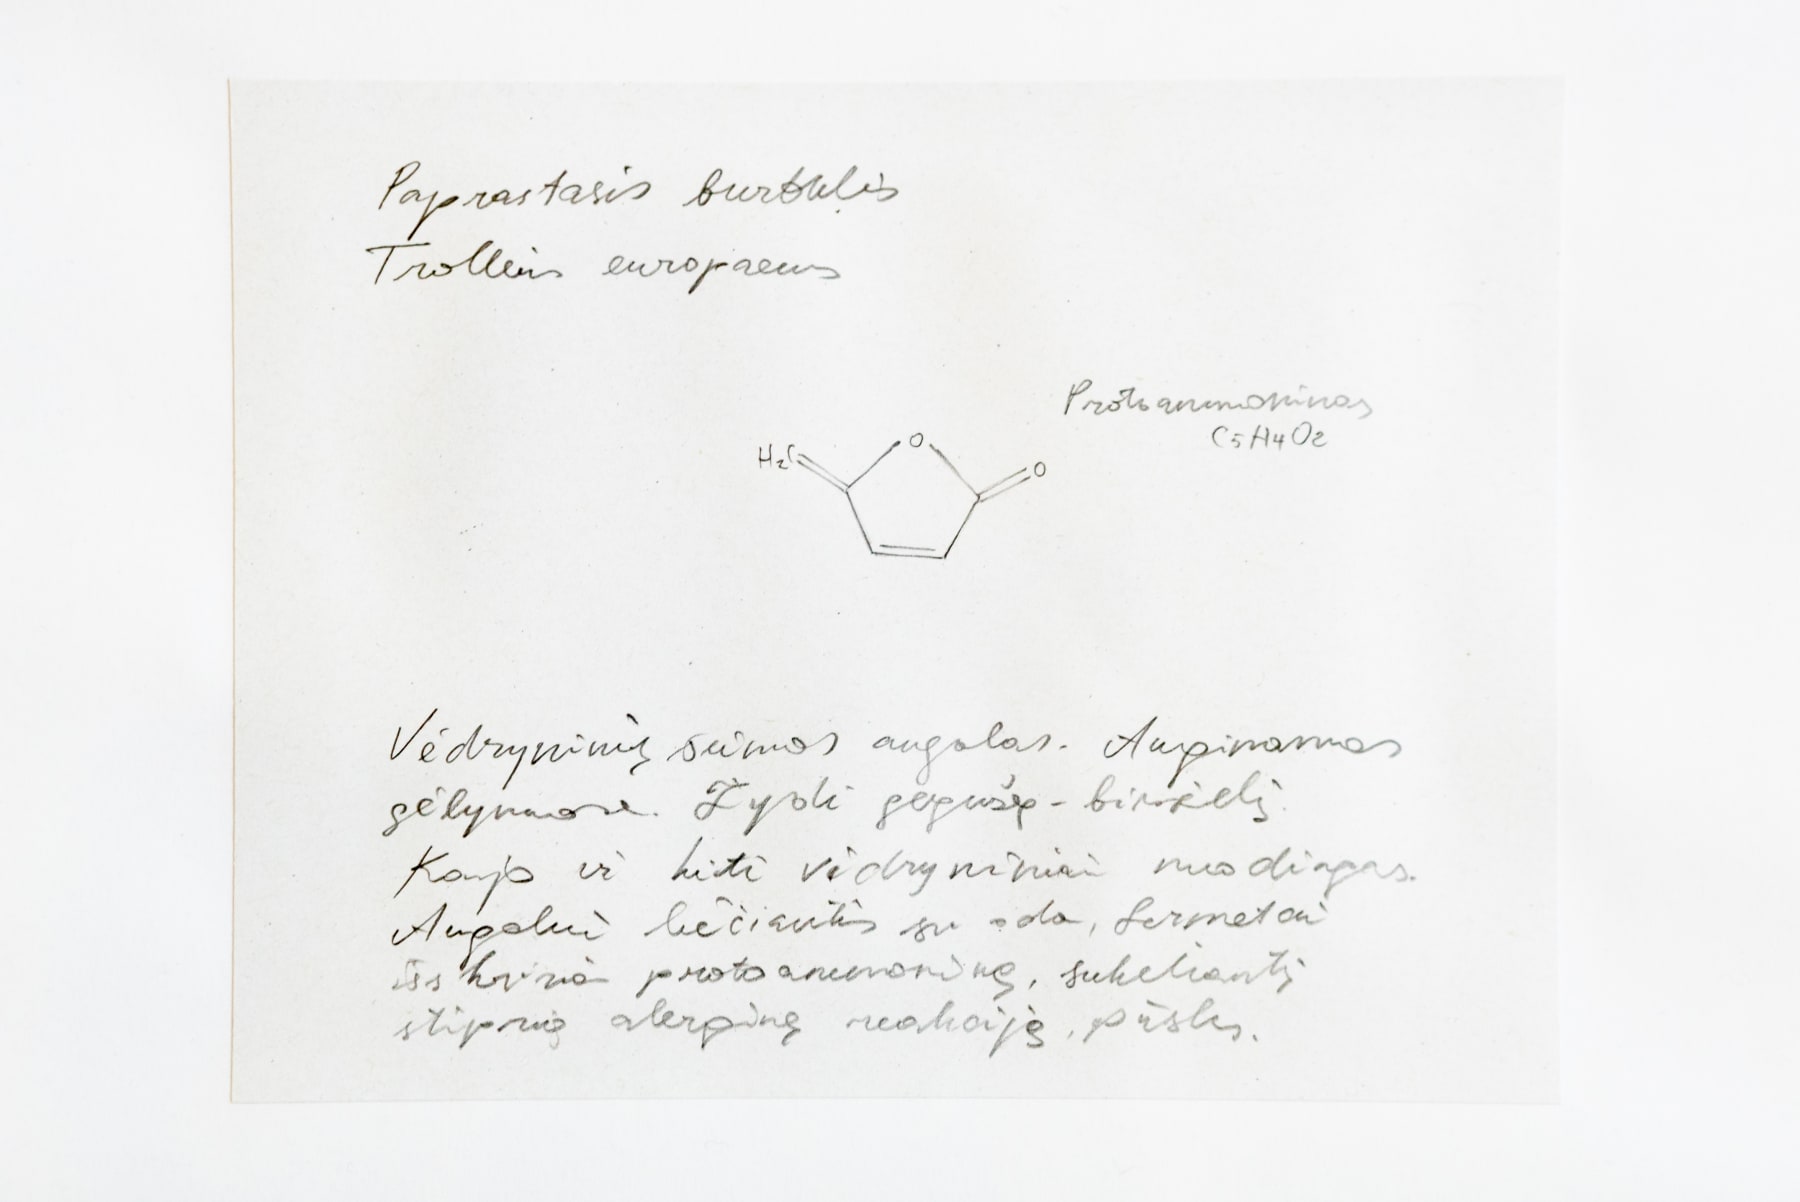 Paprastasis burbulis
Trollius europaeus
Protoanemoninas
C5H4O2
H2C
O
O
Vėdryninių šeimos augalas. Auginamas
gėlynuose. Žydi gegužę - birželį.
Kaip ir kiti vėdryniniai nuodingas.
Augalui liečiantis su oda, fermetai
išskiria protoanemoniną, sukeliantį
stiprią alerginę reakciją, pūsles.